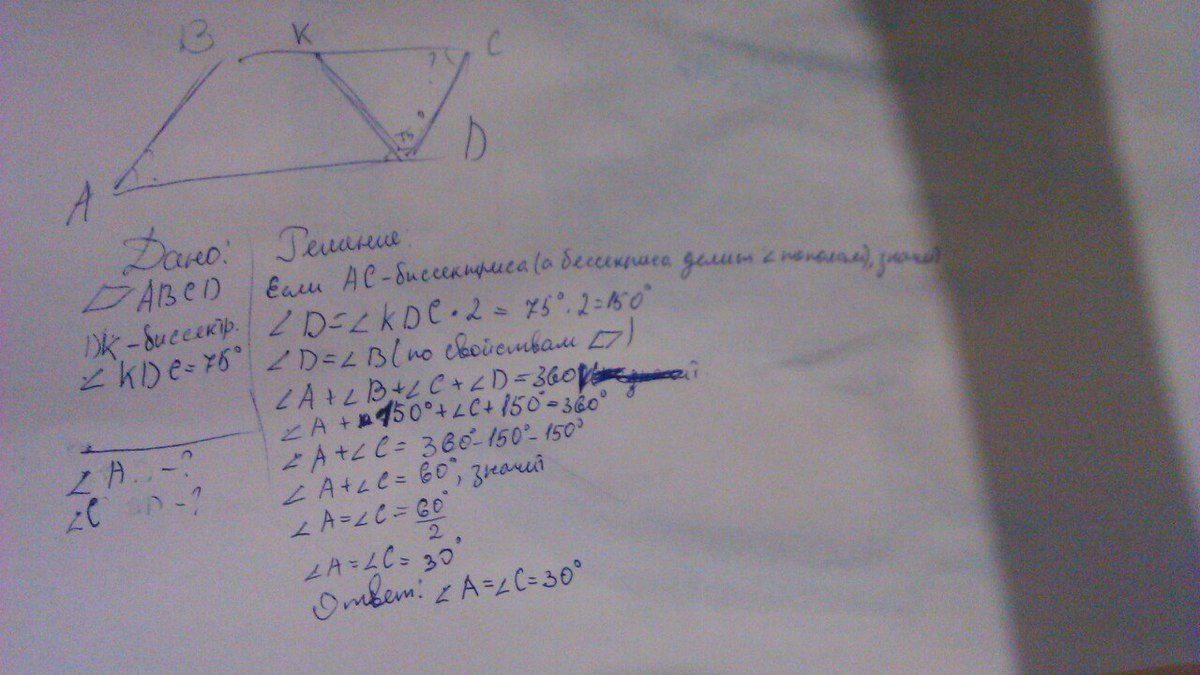 B K C
75°
?
A D
Дано:
▱ ABCD
DK-биссектр.
∠ KDC=75°
∠ A -?
∠C -?
Решение:
Если AC-биссектриса (а бессектриса делит ∠ пополам), значит
∠ D=∠ KDC · 2 = 75° · 2=150°
∠ D=∠ B (по свойствам ▱)
∠ A + ∠ B + ∠ C + ∠ D = 360
∠ A + 150° + ∠ C + 150° = 360°
∠ A + ∠ C = 360° - 150° - 150°
∠ A + ∠ C = 60°, значит
∠ A = ∠ C = 60°/2
∠ A = ∠ C = 30°
Ответ: ∠ A = ∠ C = 30°